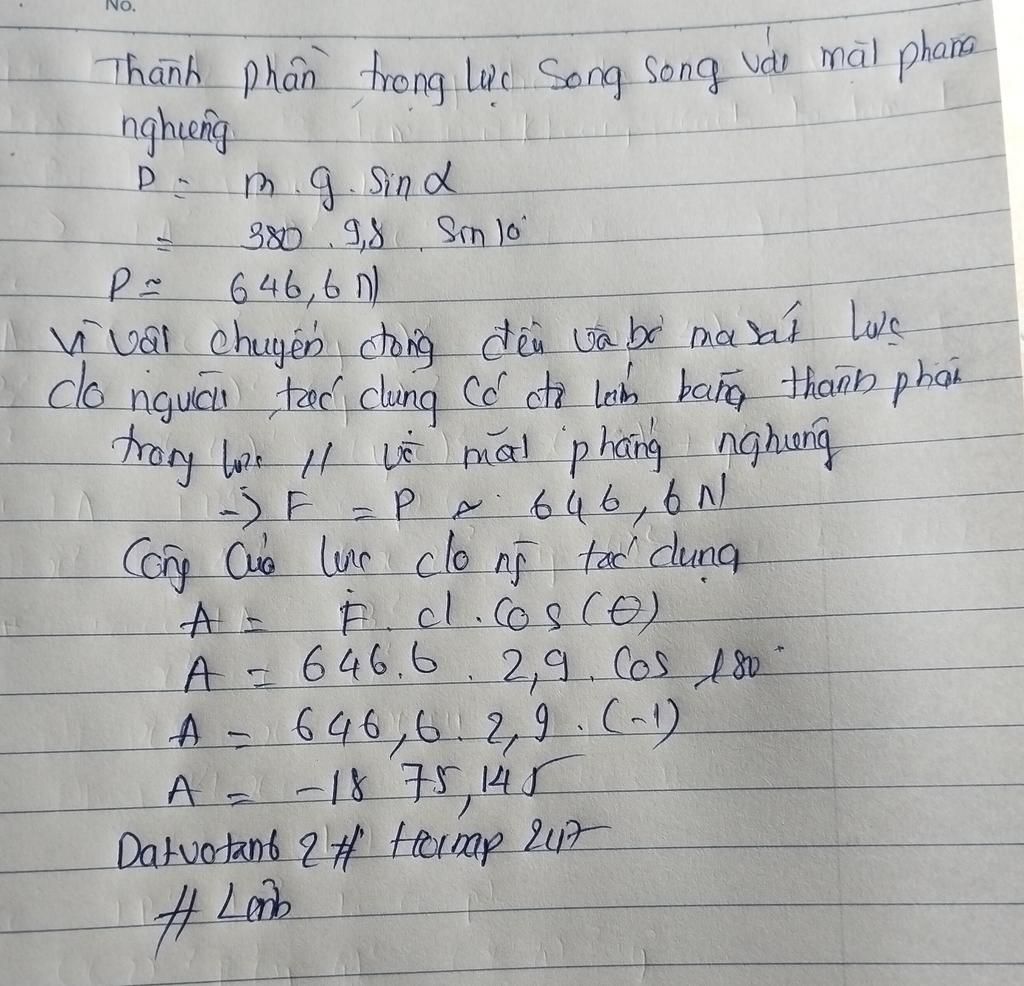 No.
Thành phần trọng lực song song với mặt phẳng
nghiêng
P = m . g . sin α
= 380 . 9,8 . Sin 10°
P = 646,6 N
Vì vật chuyển động đều và bỏ ma sát lực
do người tác dụng có độ lớn bằng thành phần
trọng lực // với mặt phẳng nghiêng
-> F = P ≈ 646,6 N
Công của lực do ng tác dụng
A = F. d . Cos (θ)
A = 646.6 . 2,9 . Cos 180°
A = 646,6 . 2,9 . (-1)
A = -18 75,14 J
Datvotanb 2 # Hoinap 247
# Lanb